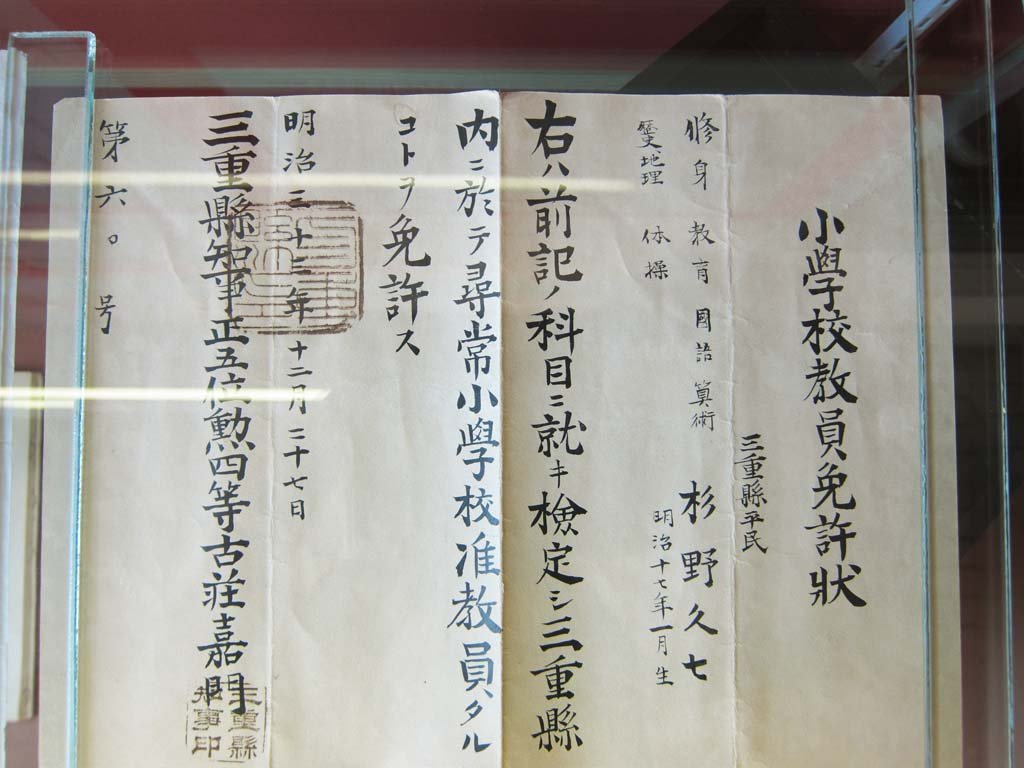 小學校教員免許狀
三重縣平民
杉野久七
明治十七年一月生
修身 教育 國語 算術
歷史 地理 体操
右ハ前記ノ科目ニ就キ檢定シ三重縣
內ニ於テ尋常小學校准教員タル
コトヲ免許ス
明治三十二年十二月二十七日
三重縣知事正五位勲四等古莊嘉門
三重縣
知事印
第六〇号